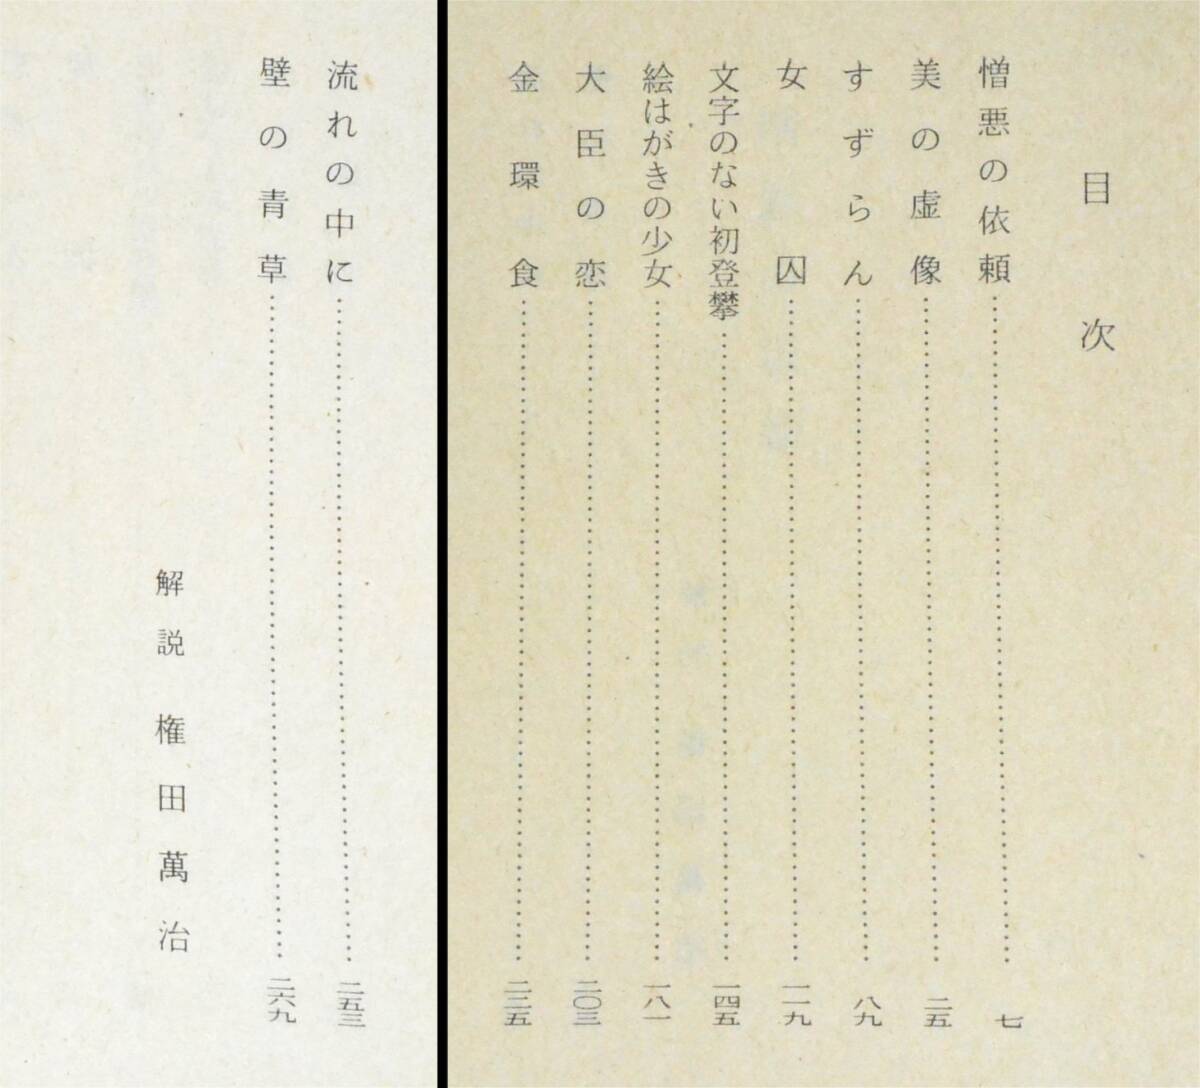 目次
憎悪の依頼……七
美の虚像……二五
すずらん……八九
女囚……一一九
文字のない初登攀……一四五
絵はがきの少女……一八一
大臣の恋……二〇三
金環食……二三五
流れの中に……二五三
壁の青草……二六九
解説 権田萬治